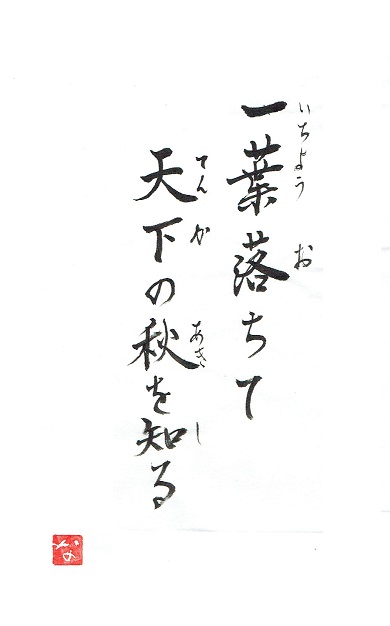 一葉落ちて
いちよう お
天下の秋を知る
てんか あき し